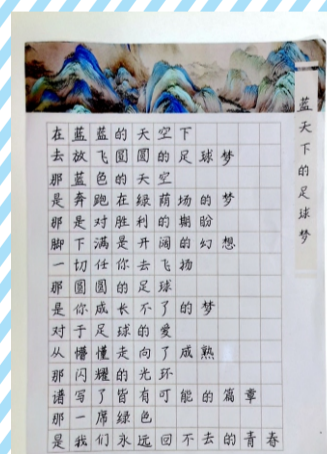 蓝天下的足球梦
在蓝蓝的天空下
去放飞圆圆的足球梦
那蓝色的天空
是奔跑在绿荫场的梦
那是对胜利的期盼
脚下满是开阔的幻想
一切任你去飞扬
那圆圆的足球
是你成长不了的梦
对于足球的爱
从懵懂走向了成熟
那闪耀的光环
谱写了皆有可能的篇章
那一席绿色
是我们永远回不去的青春